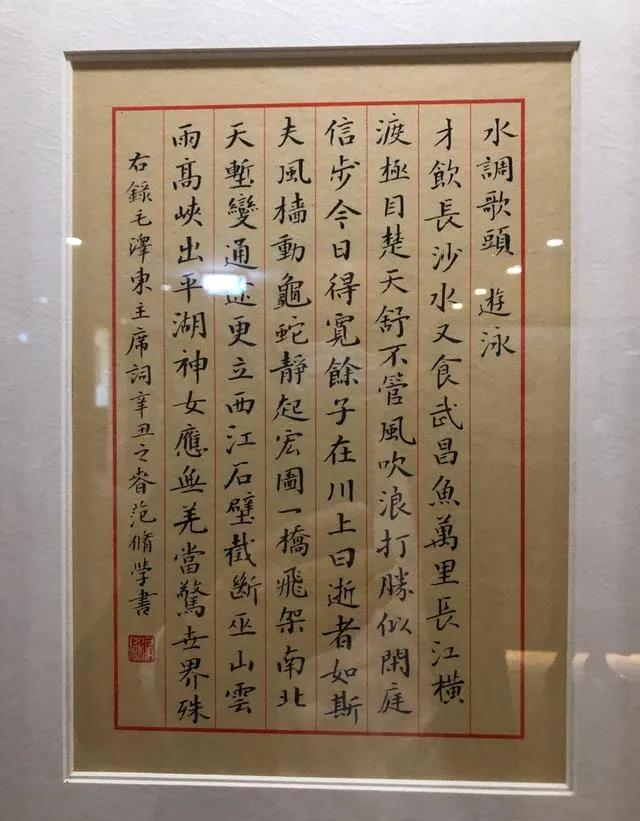 水調歌頭 遊泳
才飲長沙水又食武昌魚萬里長江橫
渡極目楚天舒不管風吹浪打勝似閑庭
信步今日得寬餘子在川上曰逝者如斯
夫風檣動龜蛇靜起宏圖一橋飛架南北
天塹變通途更立西江石壁截斷巫山雲
雨高峽出平湖神女應無羌當驚世界殊
右錄毛澤東主席詞辛丑之春范脩學書